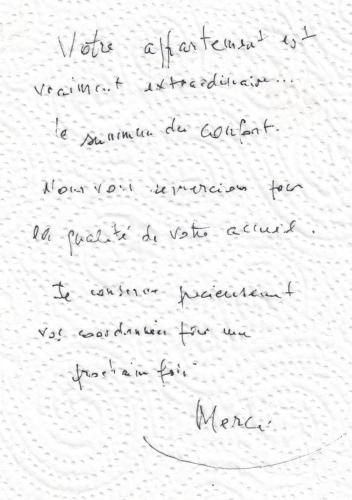 Votre appartement est
vraiment extraordinaire...
le summum du confort.
Nous vous remercions pour
la qualité de votre accueil.
Je conserve précieusement
vos coordonnées pour une
prochaine fois.
Merci